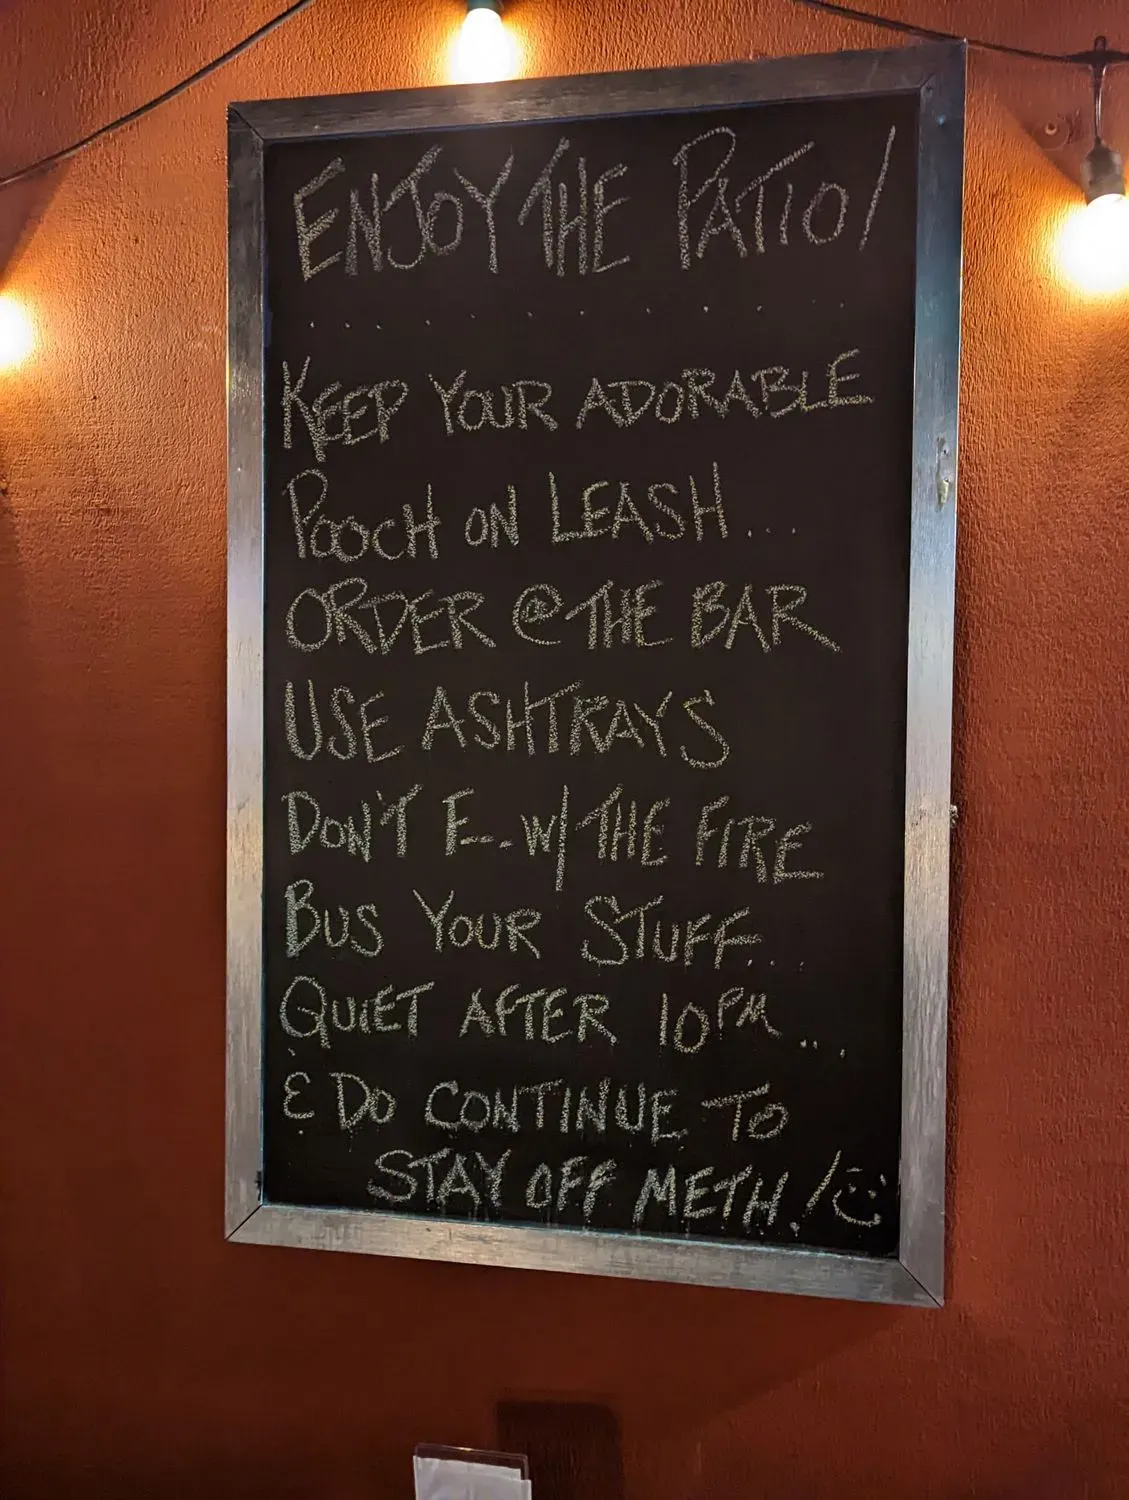 ENJOY THE PATIO!
KEEP YOUR ADORABLE
POOCH ON LEASH...
ORDER @ THE BAR
USE ASHTRAYS
DON'T F-- W/ THE FIRE
BUS YOUR STUFF...
QUIET AFTER 10PM...
& DO CONTINUE TO
STAY OFF METH.!